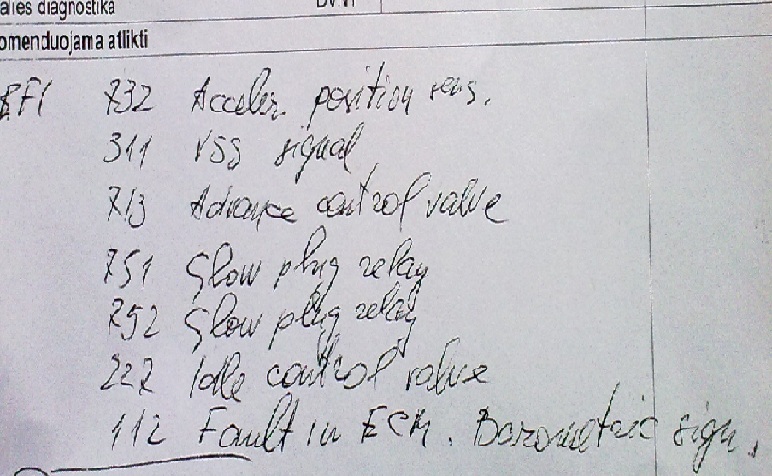 alies diagnostika
omenduojama atlikti
EFI 732 Acceler. position sens.
311 VSS signal
713 Advance control valve
751 Glow plug relay
752 Glow plug relay
227 Idle control valve
112 Fault in ECM. Barometric sign.